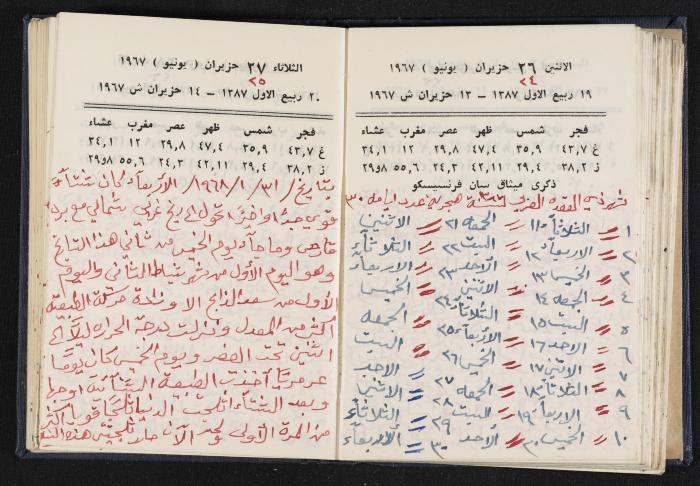 الاثنين ٢٦ حزيران ( يونيو ) ١٩٦٧
٢٤
١٩ ربيع الاول ١٣٨٧ – ١٣ حزيران ش ١٩٦٧
فجر شمس ظهر عصر مغرب عشاء
غ ٤٣,٧ ٣٥,٩ ٤٧,٤ ٢٩,٨ ١٢ ٣٤,١
ز ٣٨,٢ ٢٩,٤ ٤٢,١١ ٢٤,٣ ٥٥,٦ ٢٩و٨
ذكرى ميثاق سان فرنسيسكو
شهر ذي القعده سنة هجريه عدد ايامه ٣٠
١ الثلاثاء ١١ الجمعه ٢١ الاثنين
٢ الاربعاء ١٢ السبت ٢٢ الثلاثاء
٣ الخميس ١٣ الاحد ٢٣ الاربعاء
٤ الجمعه ١٤ الاثنين ٢٤ الخميس
٥ السبت ١٥ الثلاثاء ٢٥ الجمعه
٦ الاحد ١٦ الاربعاء ٢٦ السبت
٧ الاثنين ١٧ الخميس ٢٧ الاحد
٨ الثلاثاء ١٨ الجمعه ٢٨ الاثنين
٩ الاربعاء ١٩ السبت ٢٩ الثلاثاء
١٠ الخميس ٢٠ الاحد ٣٠ الاربعاء
الثلاثاء ٢٧ حزيران ( يونيو ) ١٩٦٧
٢٥
٢٠ ربيع الاول ١٣٨٧ – ١٤ حزيران ش ١٩٦٧
فجر شمس ظهر عصر مغرب عشاء
غ ٤٣,٧ ٣٥,٩ ٤٧,٤ ٢٩,٨ ١٢ ٣٤,١
ز ٣٨,٢ ٢٩,٤ ٤٢,١١ ٢٤,٣ ٥٥,٦ ٢٩و٨
بتاريخ ٣١ / ١ / ١٩٦٨ / الأربعاء كان شتاء
قوي جدا واخيرا تحول الى ريح غربي شمالي مع برد
قارص وما جاء يوم الخميس من ثاني هذا التاريخ
وهو اليوم الأول من شهر شباط الثاني واليوم
الأول من سعد الذابح الا وزادة حركة الطبيعة
أكثر من المعدل ونزلت درجة الحراره ليلا الى
اثنين تحت الصفر ويوم الخميس كان يوما
عرمرميا أخذت الطبيعة اوجها
وبعد الشتاء أثلجت الدنيا ثلجا قويا أكثر
من المرة الأولى ولحد الآن هذه السنة